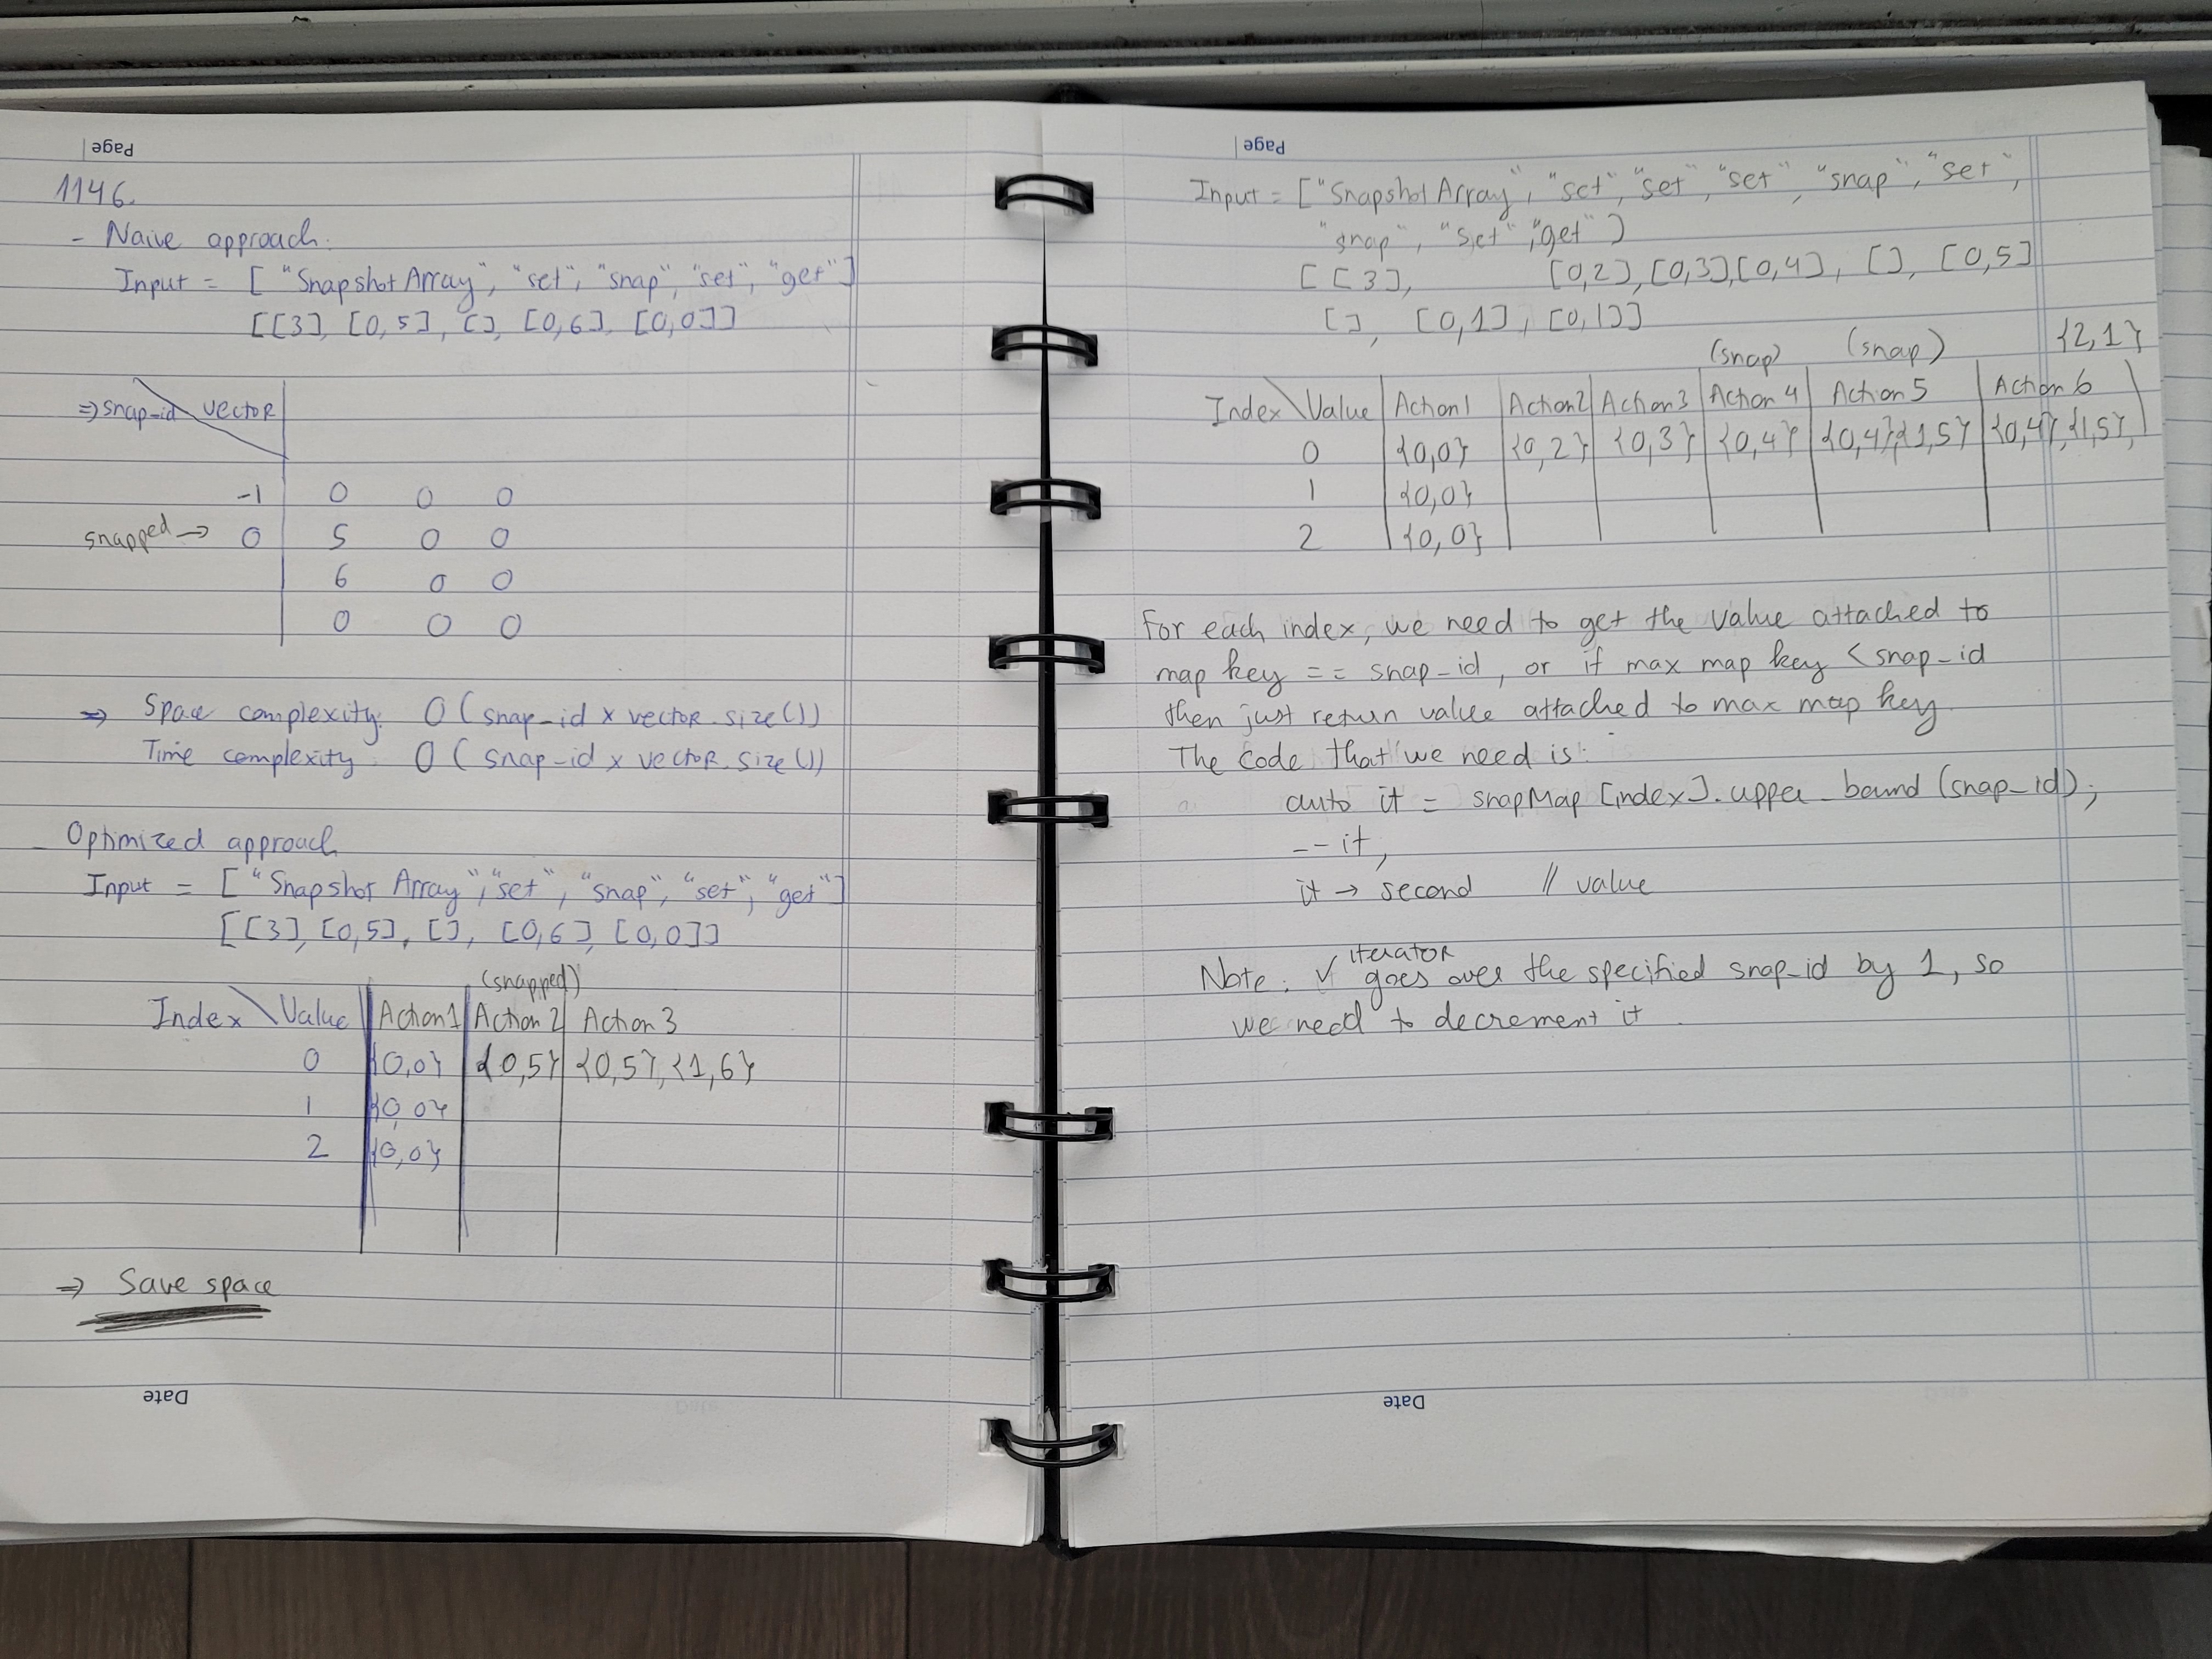 Page
1146.
- Naive approach.
Input = [ "SnapshotArray", "set", "snap", "set", "get"]
[[3], [0,5], [], [0,6], [0,0]]
=> snap-id vector
-1 0 0 0
snapped -> 0 5 0 0
6 0 0
0 0 0
=> Space complexity: O ( snap-id x vector.size())
Time complexity: O ( snap-id x vector.size())
- Optimized approach
Input = [ "Snapshot Array", "set", "snap", "set", "get"]
[[3], [0,5], [], [0,6], [0,0]]
(snapped)
Index \ Value Action1 Action 2 Action 3
0 {0,0} {0,5} {0,5}, {1,6}
1 {0,0}
2 {0,0}
=> Save space
Date
Page
Input = ["Snapshot Array", "set", "set", "set", "snap", "set",
"snap", "set", "get"]
[[3], [0,2], [0,3] [0,4], [], [0,5]
[], [0,1], [0,1]]
(snap) (snap) {2,1}
Index \ Value Action1 Action2 Action 3 Action 4 Action 5 Action 6
0 {0,0} {0,2} {0,3} {0,4} {0,4},{1,5} {0,4},{1,5},
1 {0,0}
2 {0,0}
For each index, we need to get the value attached to
map key == snap-id, or if max map key < snap-id
then just return value attached to max map key.
The code that we need is:
auto it = snapMap [index].upper_bound (snap_id);
--it;
it -> second // value
iterator
Note: ✓ goes over the specified snap-id by 1, so
we need to decrement it.
Date